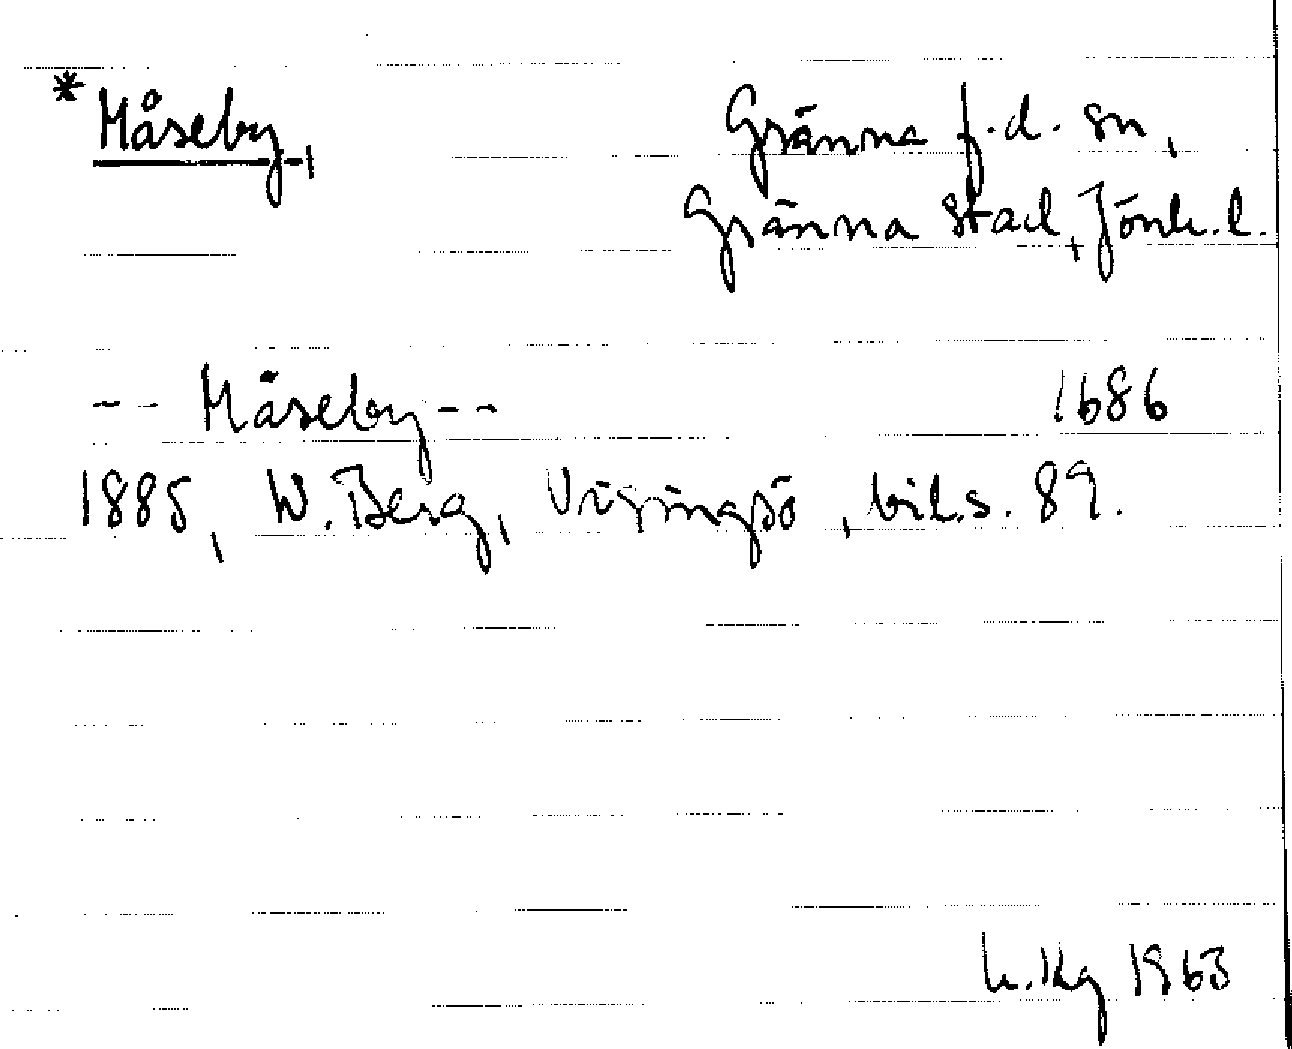 * Måseby, Gränna f.d. sn,
Gränna stad, Jönk. l.
-- Måseby -- 1686
1885, W. Berg, Visingsö, bil. s. 89.
1963